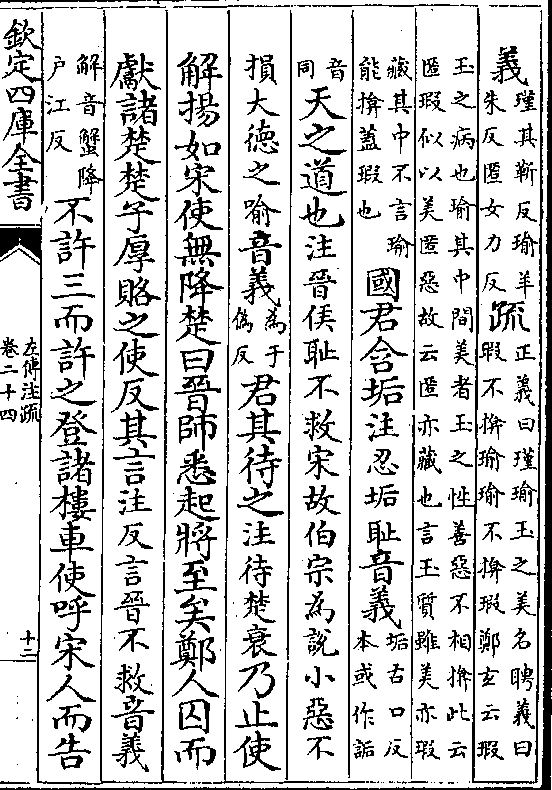 義瑾其靳反瑜羊
朱反匿女力反疏正義曰瑾瑜玉之美名聘義曰
瑕不揜瑜瑜不揜瑕鄭𤣥云瑕
玉之病也瑜其中間美者玉之性善惡不相揜此云
匿瑕似以美匿惡故云匿亦藏也言玉質雖美亦瑕
藏其中不言瑜
能揜蓋瑕也國君含垢注忍垢耻音義垢古口反
本或作詬
音
同天之道也注晉侯耻不救宋故伯宗為說小惡不
損大德之喻音義為于
偽反君其待之注待楚衰乃止使
解揚如宋使無降楚曰晉師悉起將至矣鄭人囚而
獻諸楚楚子厚賂之使反其言注反言晉不救音義
解音蟹降
户江反不許三而許之登諸樓車使呼宋人而告
欽定四庫全書
左傳注疏
卷二十四
十二